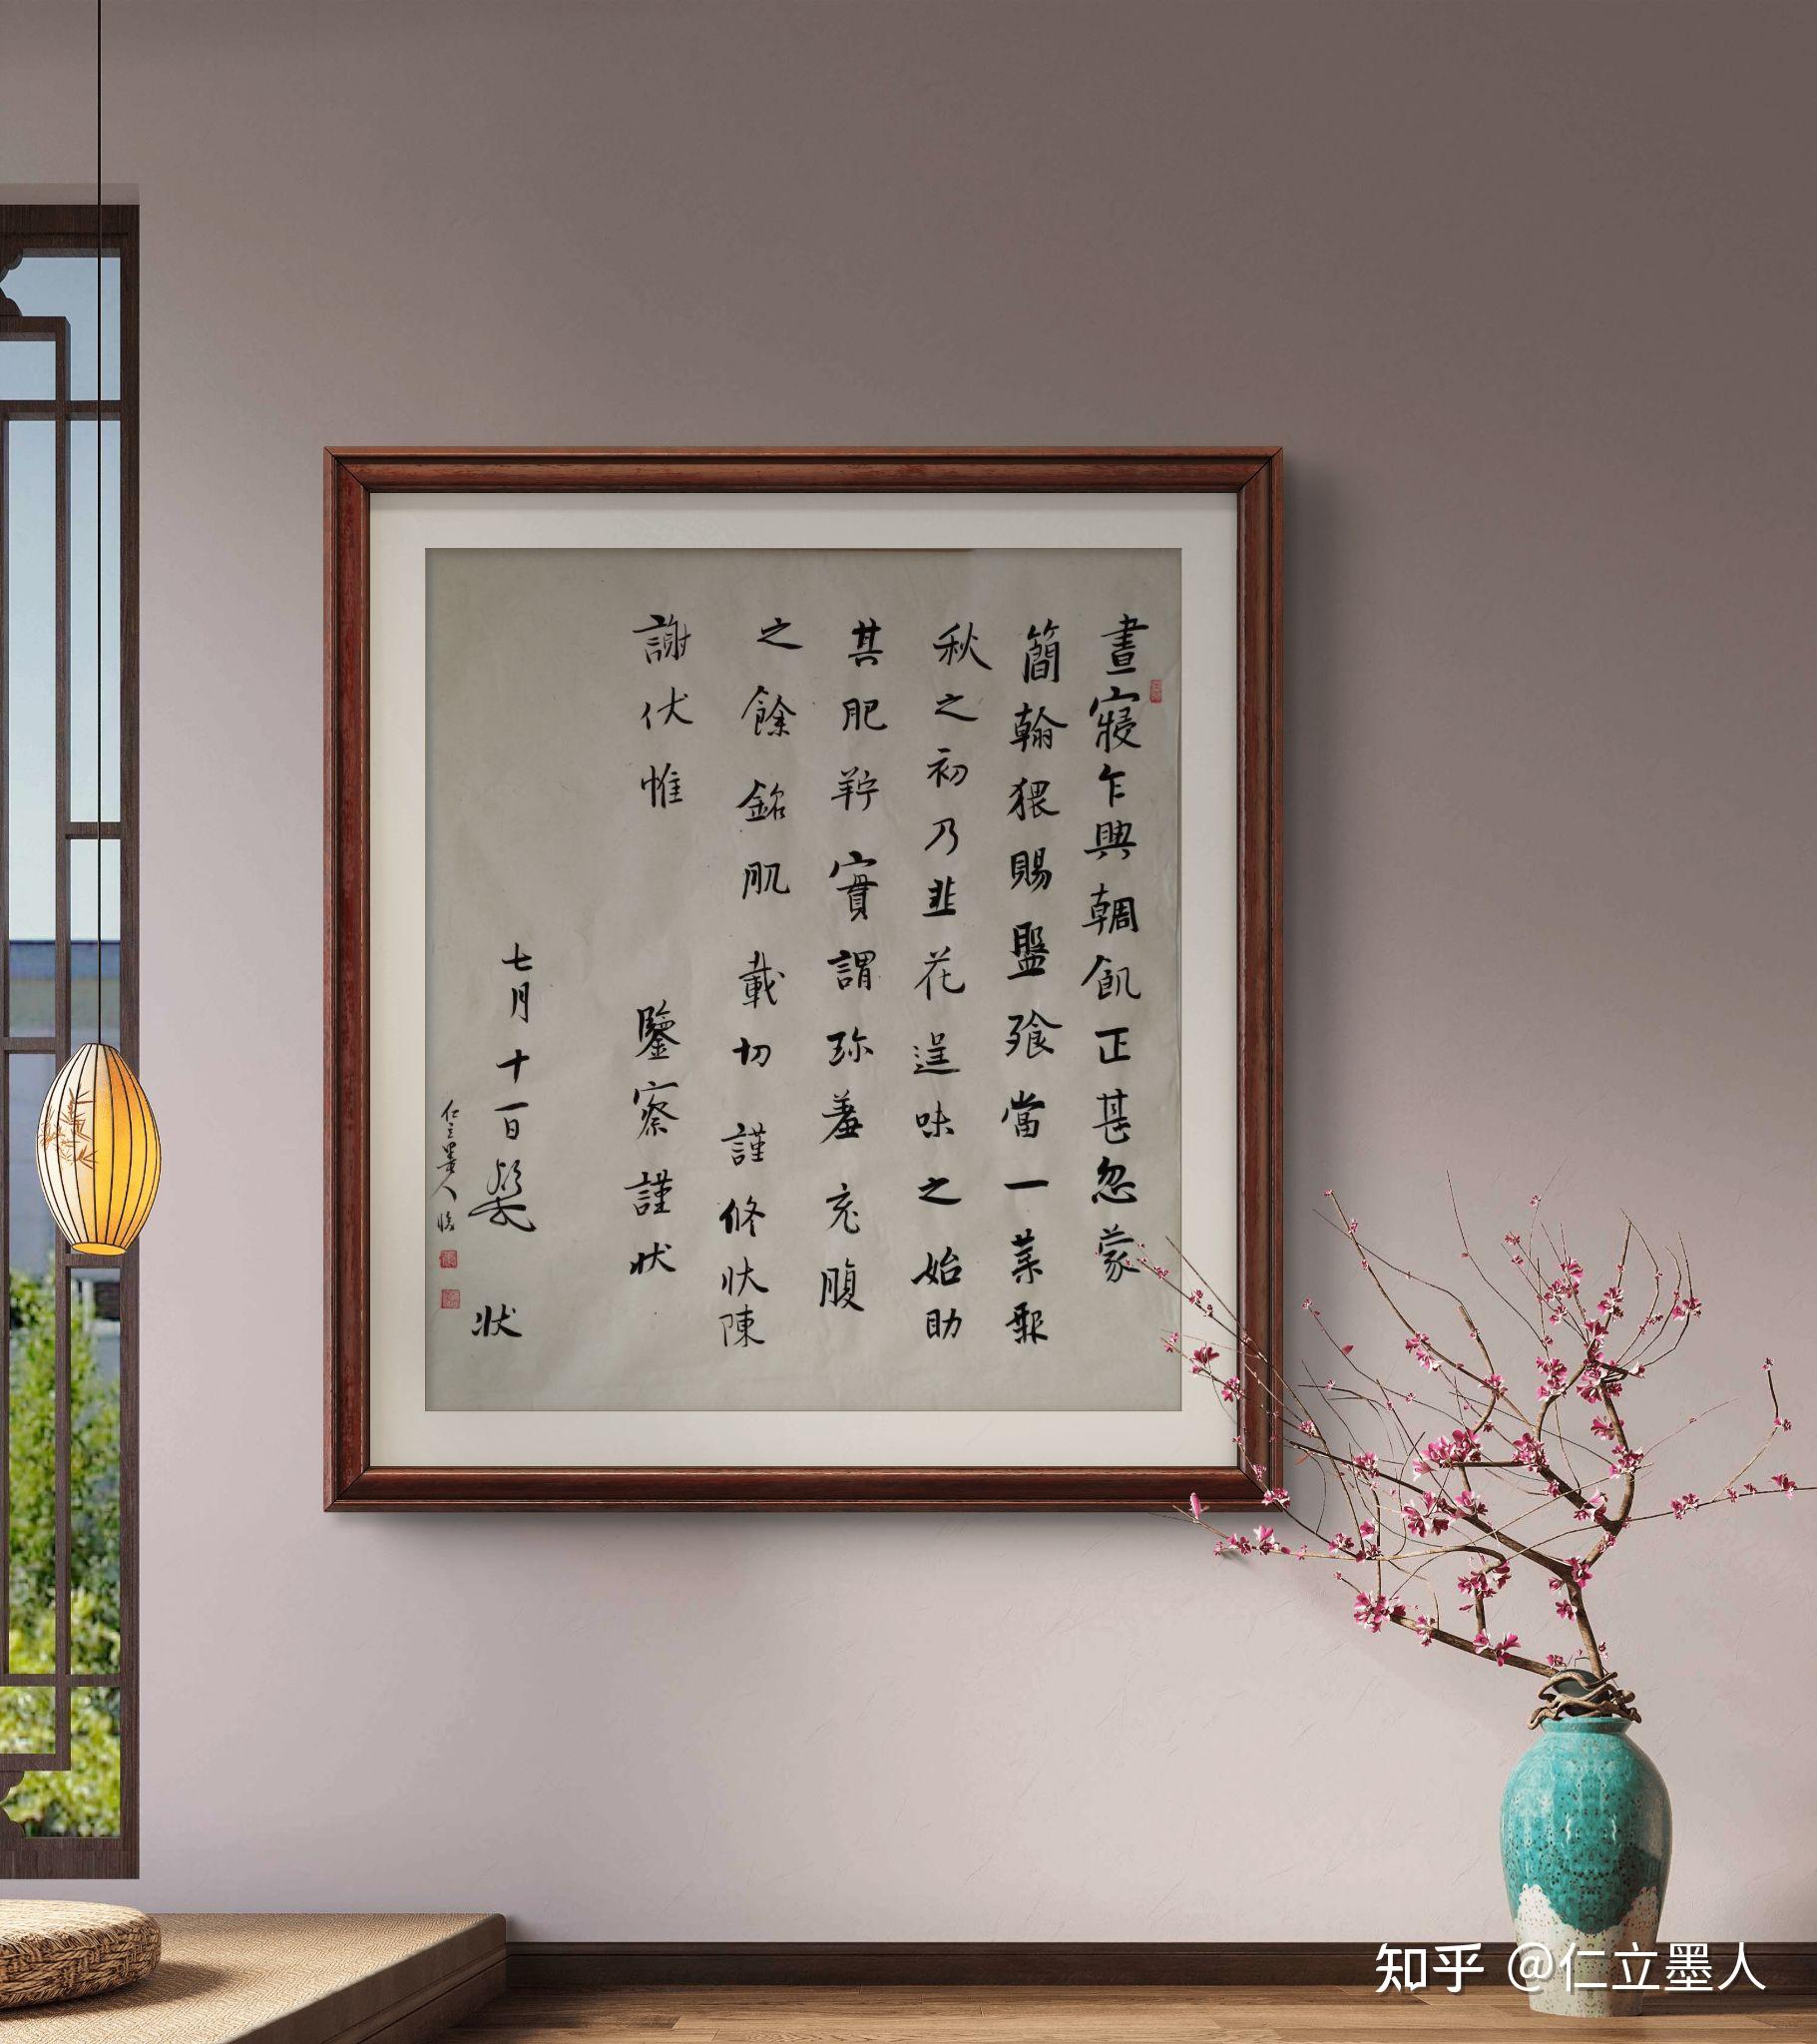 晝寢乍興輖飢正甚忽蒙
簡翰猥賜盤飧當一葉報
秋之初乃韭花逞味之始助
其肥羜實謂珍羞充腹
之餘銘肌載切謹修狀陳
謝伏惟鑒察謹狀
七月十一日凝式狀
仁立墨人臨
知乎 @仁立墨人